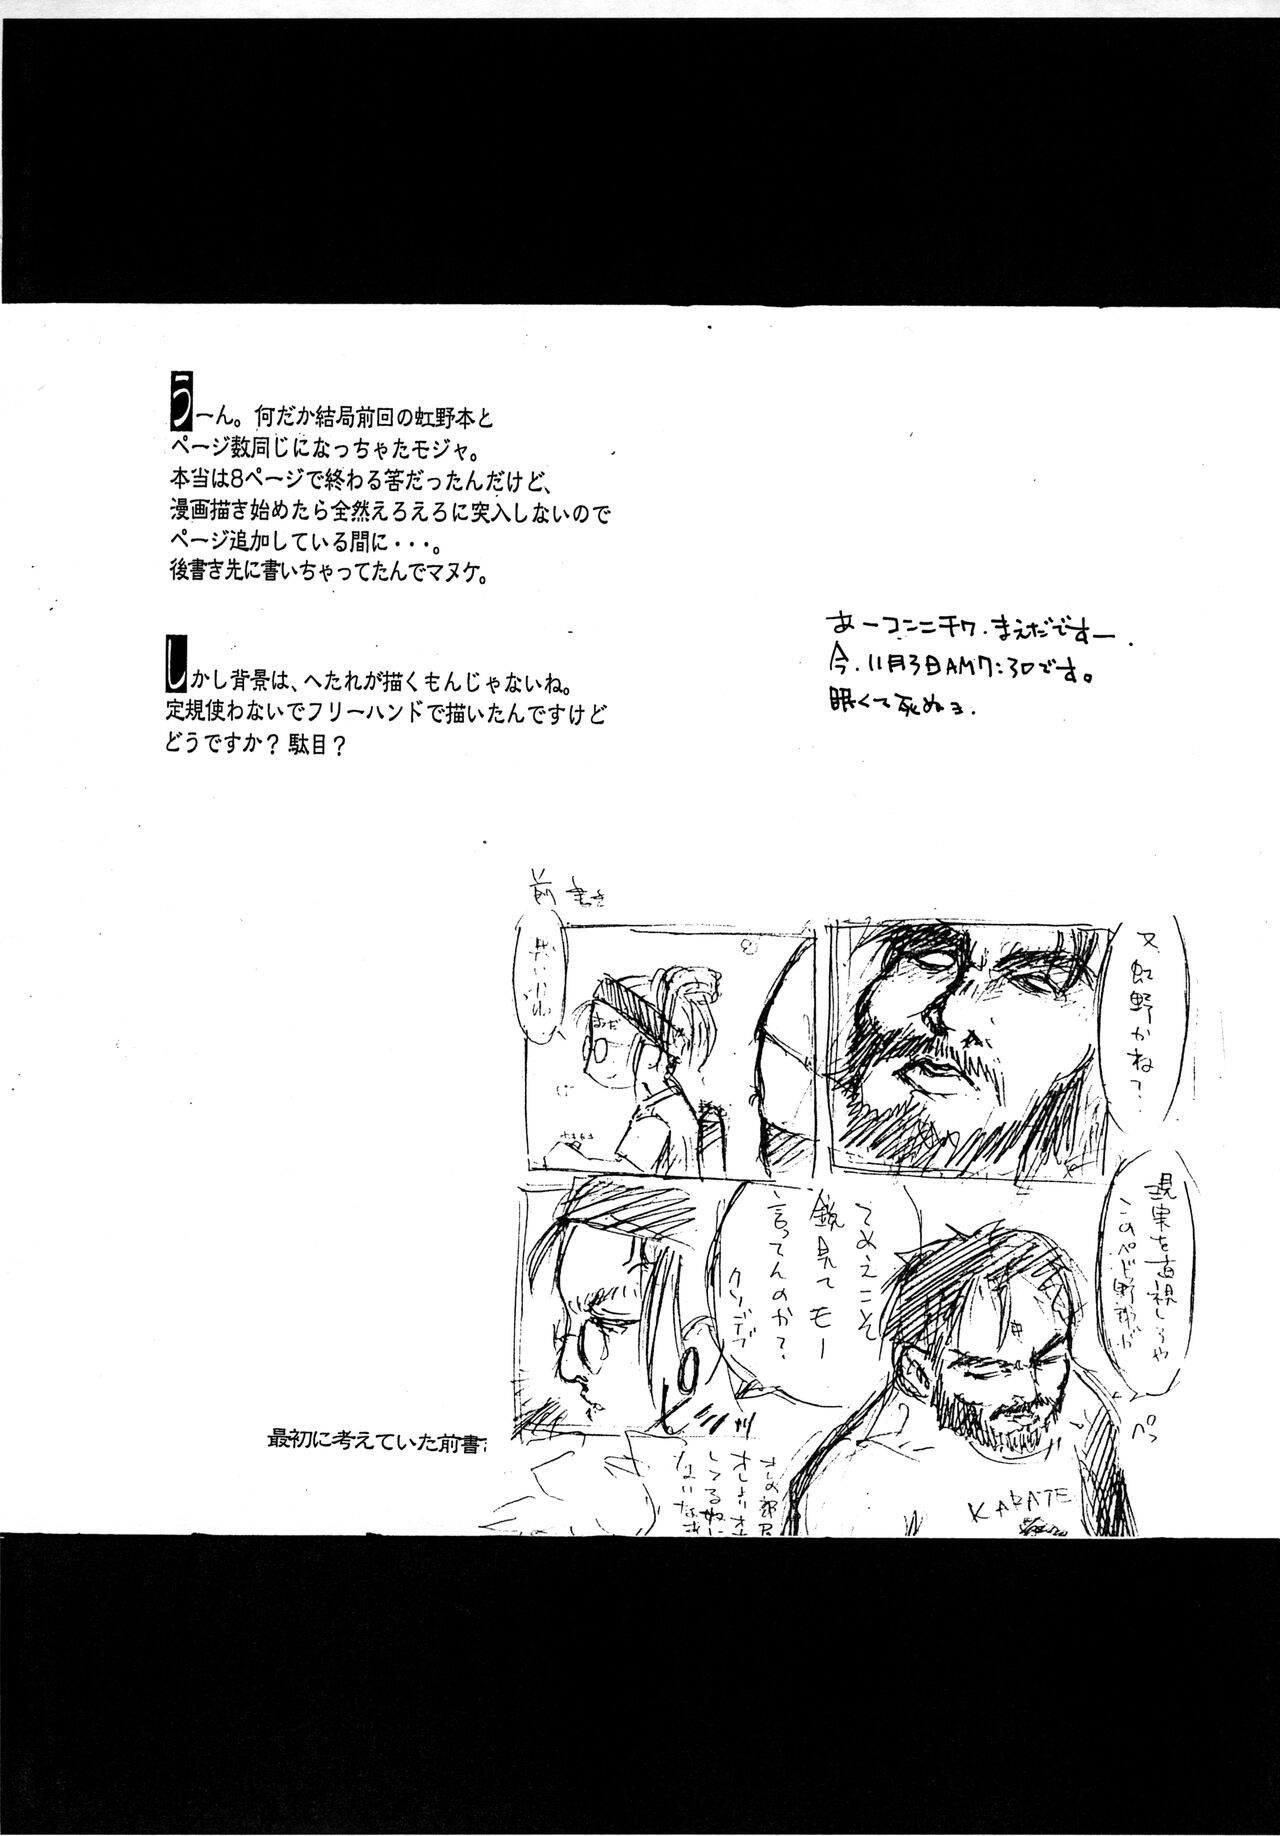 うーん。何だか結局前回の虹野本と
ページ数同じになっちゃたモジャ。
本当は8ページで終わる筈だったんだけど、
漫画描き始めたら全然えろえろに突入しないので
ページ追加している間に・・・。
後書き先に書いちゃってたんでマヌケ。
しかし背景は、へたれが描くもんじゃないね。
定規使わないでフリーハンドで描いたんですけど
どうですか？駄目？
あーコンニチワ.まえだです―.
今.11月3日AM7:30です。
眠くて死ぬョ.
前書き
又、虹野かね?
おだ
現実を直視しろや
このペド野郎が
ペッ
てめえこそ
鏡見てモー
言ってんのか?
クソデブ
KARATE
最初に考えていた前書